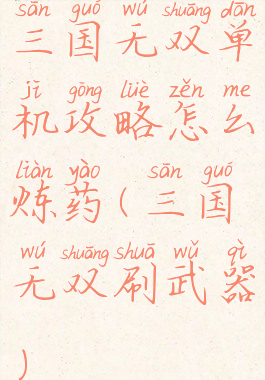 sān guó wú shuāng dān
三国无双单
jī gōng lüè zěn me
机攻略怎么
liàn yào sān guó
炼药(三国
wú shuāng shuā wǔ qì
无双刷武器
)